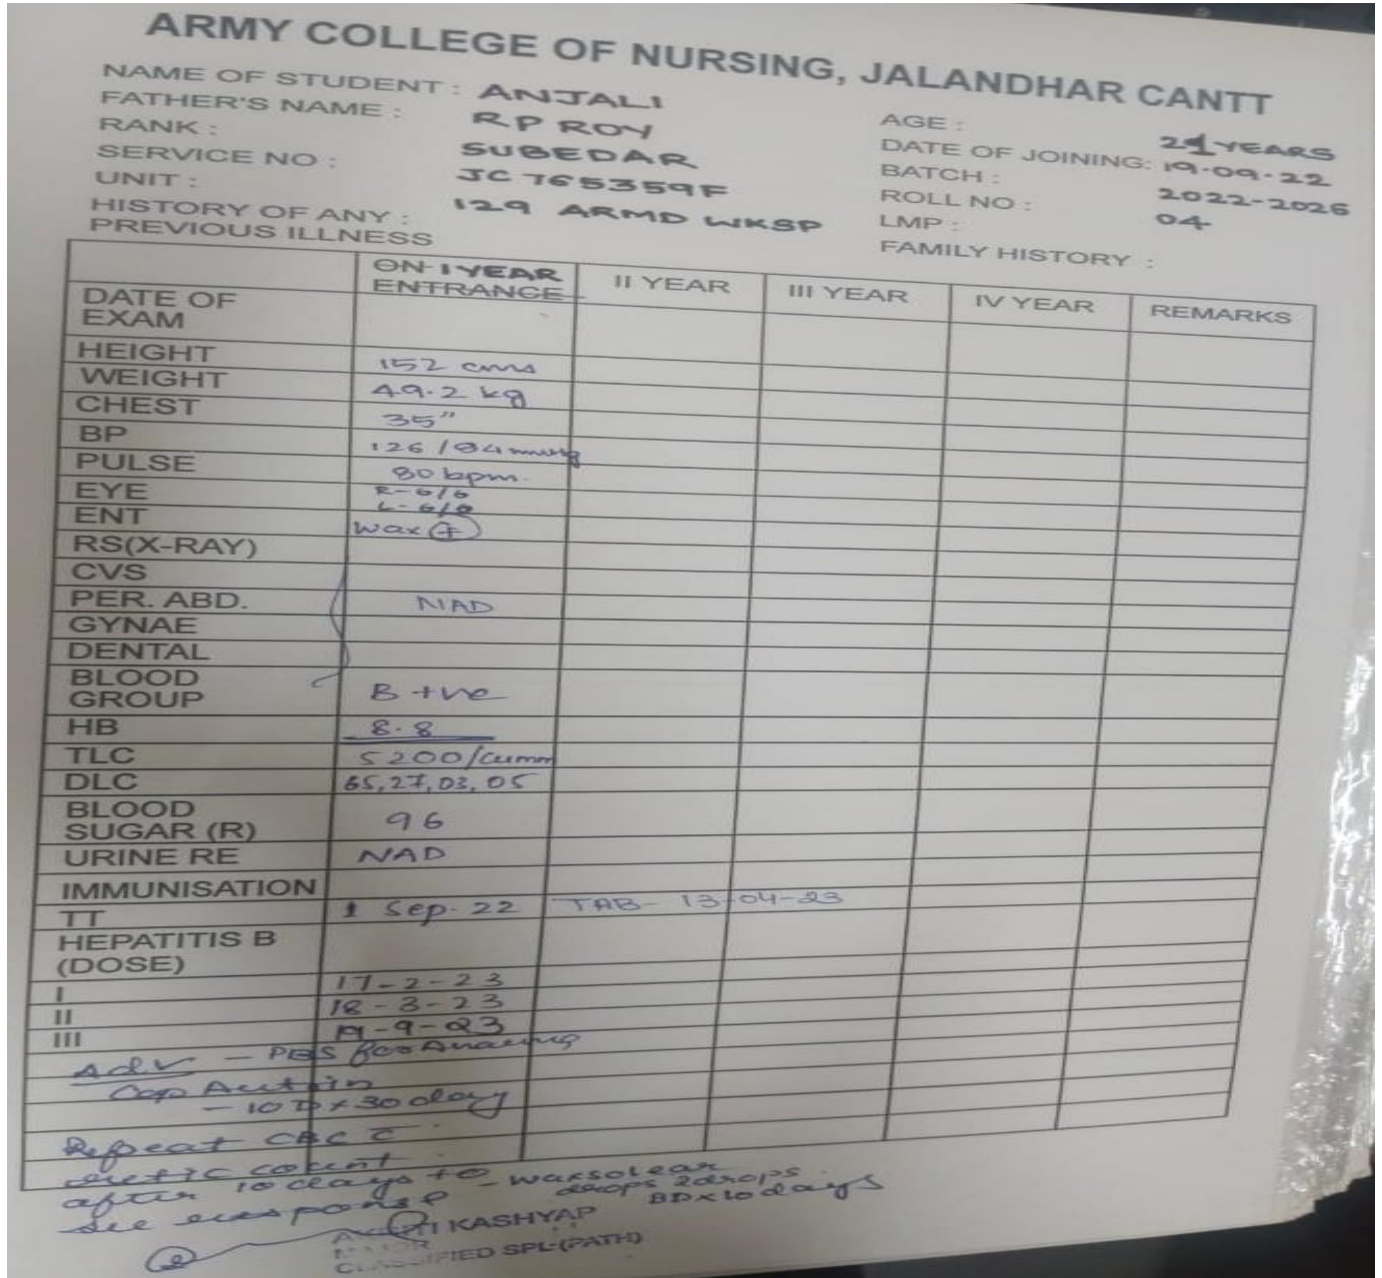 ARMY COLLEGE OF NURSING, JALANDHAR CANTT
NAME OF STUDENT : ANJALI
FATHER'S NAME : RP ROY
RANK : SUBEDAR
SERVICE NO : JC 765359F
UNIT : 129 ARMD WKSP
HISTORY OF ANY :
PREVIOUS ILLNESS
AGE : 21 YEARS
DATE OF JOINING: 19.09.22
BATCH : 2022-2026
ROLL NO : 04
LMP :
FAMILY HISTORY :
ON I YEAR ENTRANCE II YEAR III YEAR IV YEAR REMARKS
DATE OF EXAM
HEIGHT 152 cms
WEIGHT 49.2 kg
CHEST 35"
BP 126/84 mmHg
PULSE 80 bpm.
EYE R-6/6
L-6/6
ENT Wax (+)
RS(X-RAY)
CVS
PER. ABD. NAD
GYNAE
DENTAL
BLOOD GROUP B +ve
HB 8.8
TLC 5200/cumm
DLC 65,27,03,05
BLOOD SUGAR (R) 96
URINE RE NAD
IMMUNISATION
TT Sep. 22 TAB- 13-04-23
HEPATITIS B (DOSE)
I 17-2-23
II 18-3-23
III 19-9-23
Adv - PBS for
Cap
x 30 days
Repeat CBC c
retic count
after 10 days to
see response
- waxsolear
drops 2drops
BD x 10 days
KASHYAP
MAJOR
CLASSIFIED SPL-(PATH)